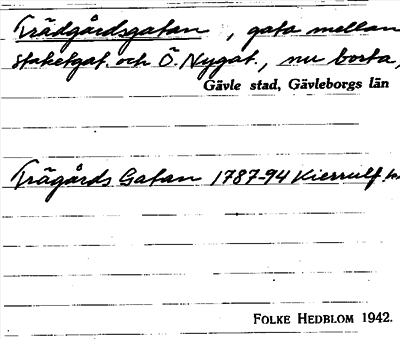 Trädgårdsgatan, gata mellan
Staketgat. och Ö. Nygat., nu borta,
Gävle stad, Gävleborgs län
Trägårds Gatan 1787-94 Kierrulf
FOLKE HEDBLOM 1942.